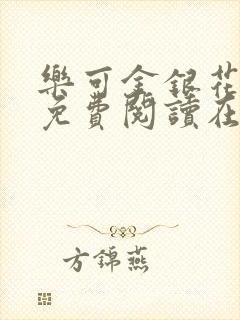 樂可金銀花
免費閱讀在
方錦燕